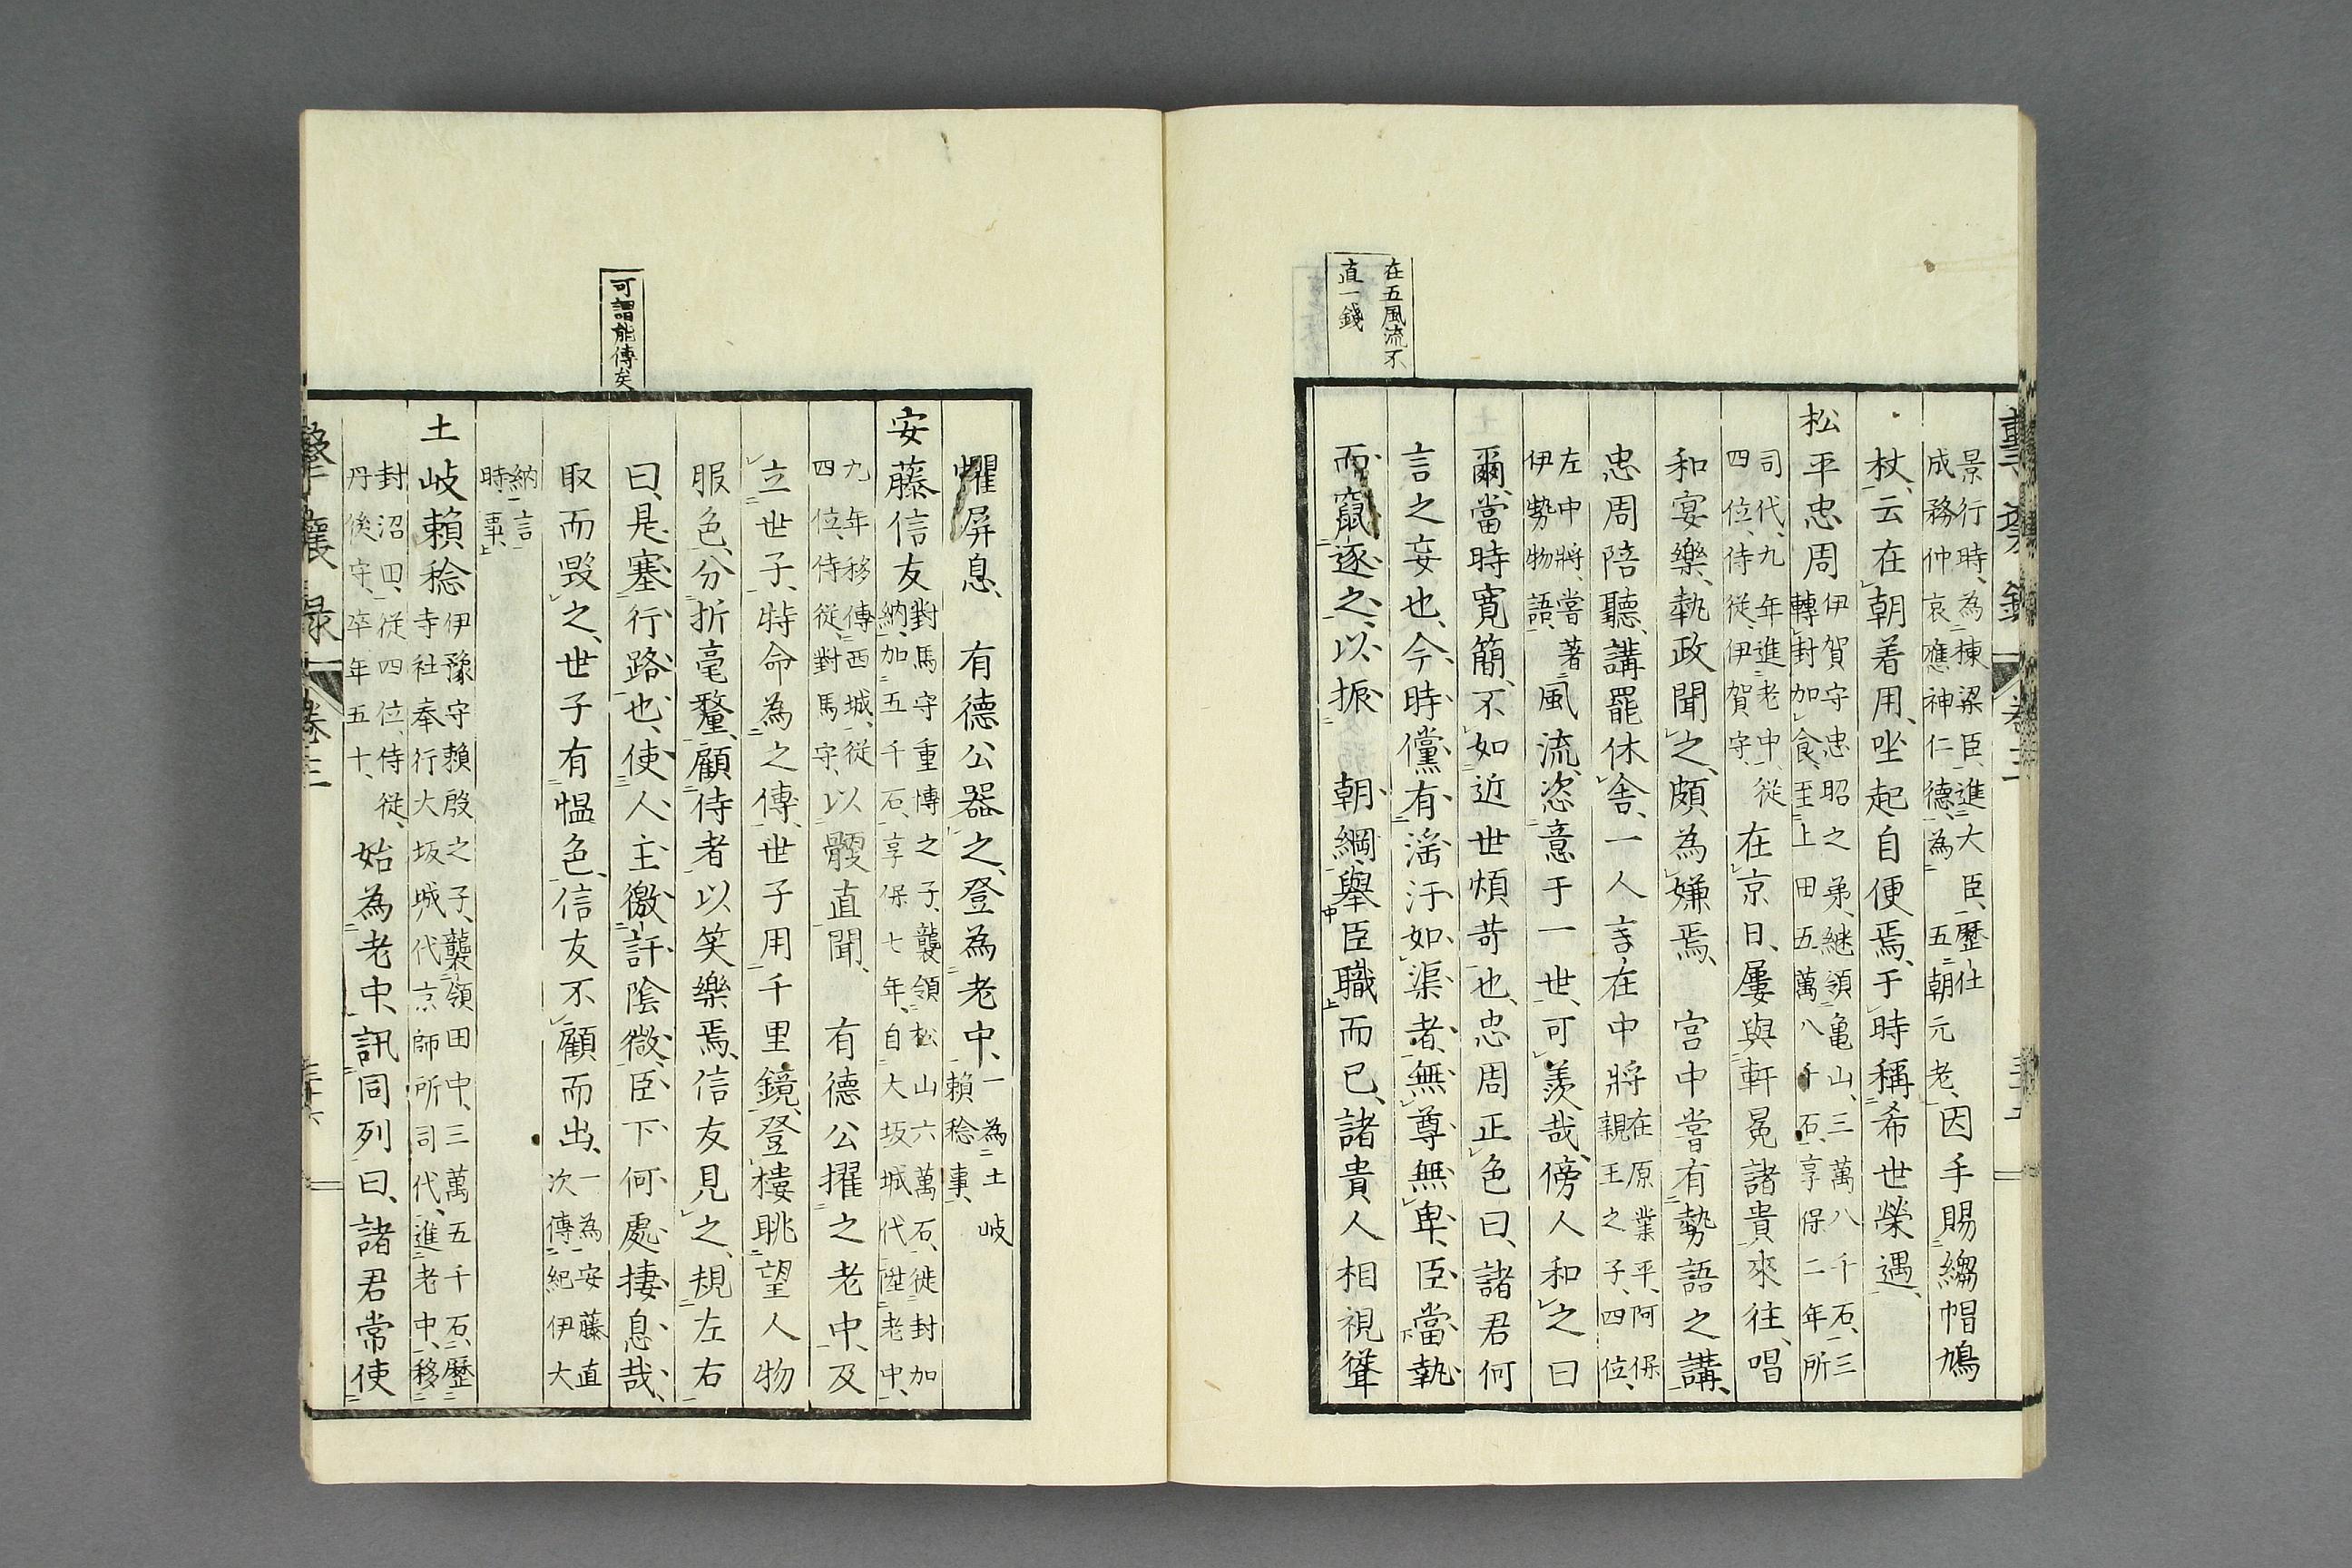 在五風流不
直一錢
景行時、為棟梁臣、進大臣、歷仕
成務仲哀應神仁德、為五朝元老、因手賜縐帽鳩
杖、云在朝着用、坐起自便焉、于時稱希世榮遇、
松平忠周伊賀守忠昭之弟、継領亀山、三萬八千石、三
轉封加食、至上田五萬八千石、享保二年所
司代、九年進老中、從
四位、侍從、伊賀守、在京日、屢與軒冕諸貴來往、唱
和宴樂、執政聞之、頗為嫌焉、 宮中嘗有勢語之講、
忠周陪聽、講罷休舍、一人言、在中將在原業平、阿保
親王之子、四位、
左中將、嘗著
伊勢物語、風流、恣意于一世、可羨哉、傍人和之曰
爾、當時寬簡、不如近世煩苛也、忠周正色曰、諸君何
言之妄也、今時儻有淫汙如渠者、無尊無卑、臣當執
而竄逐之、以振 朝綱、舉臣職而已、諸貴人相視聳
可謂能傳矣
懼屏息、 有德公器之、登為老中、一為土岐
賴稔事、
安藤信友對馬守重博之子、襲領松山六萬石、徙封加
納、加五千石、享保七年、自大坂城代陞老中、
九年移傳西城、從
四位、侍從、對馬守、以骾直聞、 有德公擢之老中、及
立世子、特命為之傳、世子用千里鏡、登樓眺望人物
服色、分折毫釐、顧侍者以笑樂焉、信友見之、規左右
曰、是塞行路也、使人主徼訐陰微、臣下何處捿息哉、
取而毀之、世子有慍色、信友不顧而出、一為安藤直
次傳紀伊大
納言
時事、
土岐賴稔伊豫守賴殷之子、襲領田中、三萬五千石、歷
寺社奉行大坂城代京師所司代、進老中、移
封沼田、從四位、侍從、
丹後守、卒年五十、始為老中、訊同列曰、諸君常使